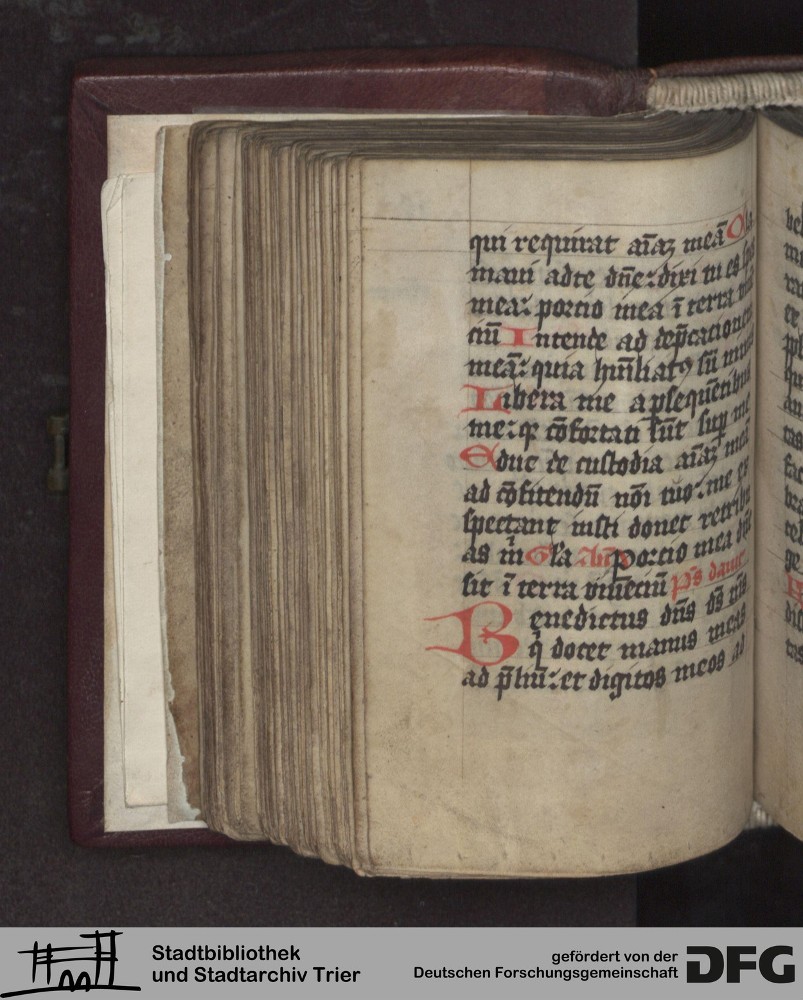 qui requirat aīaꝫ meā Cla
maui ad te dn̄e: dixi tu es spes
mea: porcio mea ī terra viuē
ciū Intende ad dep̄cationem
meā: quia humiliatꝰ sū nimis
Libera me a ꝑsequētibus
me: qꝛ ꝯfortati sūt suꝑ me
Educ de custodia aīaꝫ meā
ad ꝯfitendū nōi tuo: me ex
spectant iusti donec retribu
as m̄ Gl'a Añ porcio mea dn̄e
sit ī terra viueciū ps̄ dauit
Benedictus dn̄s ds̄ ms̄
q̇ docet manus meas
ad p̄liū: et digitos meos ad
Stadtbibliothek
und Stadtarchiv Trier
gefördert von der
Deutschen Forschungsgemeinschaft
DFG